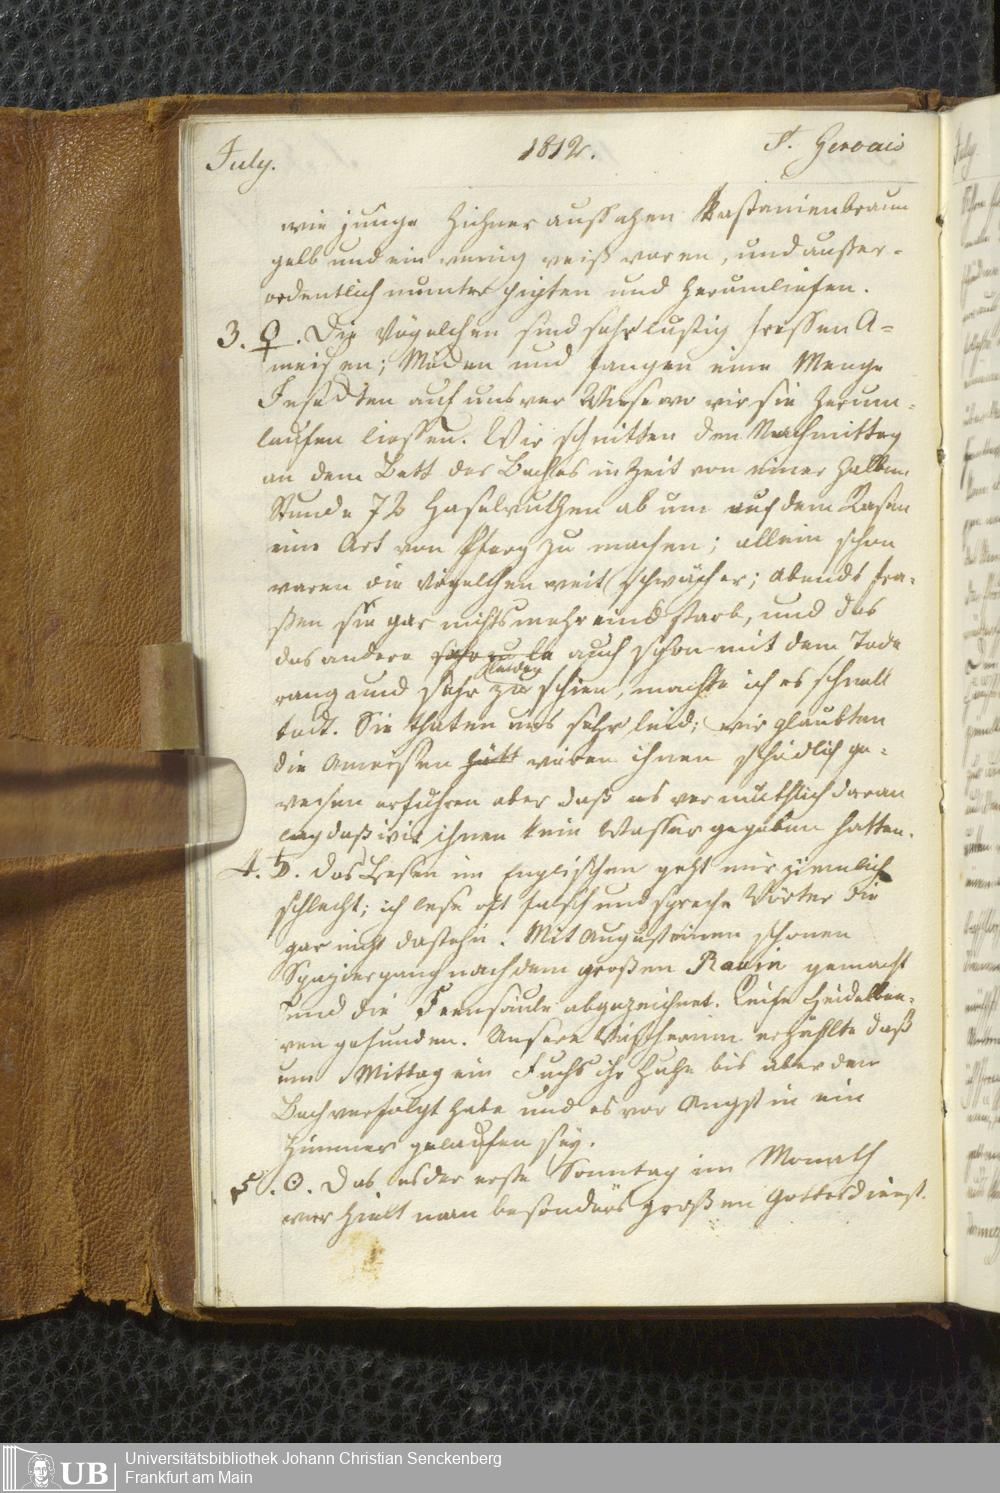 July.
1812.
St. Gervais
wie junge Hühner aussahen Kastanienbraun
gelb und ein wenig weiß waren, und außer-
ordentlich munter pipten und herumliefen.
3. ♀. Die Vögelchen sind sehr lustig fressen A-
meisen; Maden und fangen eine Menge
Insecten auf unsrer Wiese wo wir sie herum-
laufen liessen. Wir schnitten den Nachmittag
an dem Bett des Baches in Zeit von einer halben
Stunde 72 Haselruthen ab um auf dem Rasen
eine Art von Pferg zu machen; allein schon
waren die Vögelchen weit schwächer; Abends fra-
ßen sie gar nichts mehr eins starb, und das
das andere auch schon mit dem Tode
rang und sehr zu leiden schien, machte ich es schnell
todt. Sie thaten uns sehr leid; wir glaubten
die Ameisen hätt wären ihnen schädlich ge-
wesen erfuhren aber daß es vermuthlich daran
lag daß wir ihnen kein Wasser gegeben hatten.
4. ♄. Das Lesen im Englischen geht mir ziemlich
schlecht; ich lese oft falsch und spreche Wörter die
gar nicht dastehn. Mit August einen schönen
Spaziergang nach dem großen Ravin gemacht
und die Feensäule abgezeichnet. Reife Heidelbee-
ren gefunden. Unsere Wirtherinn erzählte daß
um Mittag ein Fuchs ihr Huhn bis über den
Bach verfolgt habe und es vor Angst in ein
Zimmer gelaufen sey.
5. ☉. Das es der erste Sonntag im Monath
war hielt man besonders großen Gottesdienst.
UB
Universitätsbibliothek Johann Christian Senckenberg
Frankfurt am Main